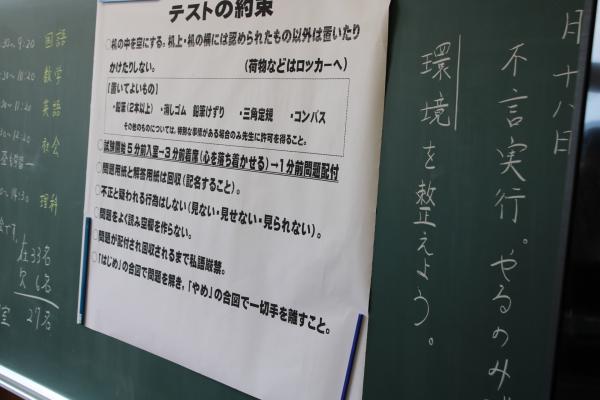 月十八日
不言実行。やるのみ
環境を整えよう。
テストの約束
○机の中を空にする。机上・机の横には認められたもの以外は置いたり
かけたりしない。 (荷物などはロッカーへ)
【置いてよいもの】
・鉛筆(2本以上) ・消しゴム 鉛筆けずり ・三角定規 ・コンパス
その他のものについては、特別な事情がある場合のみ先生に許可を得ること。
○試験開始5分前入室→3分前着席(心を落ち着かせる)→1分前問題配付
○問題用紙と解答用紙は回収(記名すること)。
○不正と疑われる行為はしない(見ない・見せない・見られない)。
○問題をよく読み空欄を作らない。
○問題が配付され回収されるまで私語厳禁。
○「はじめ」の合図で問題を解き,「やめ」の合図で一切手を離すこと。
9:20 国語
数学
11:20 英語
社会
理科
在33名
欠6名
27名